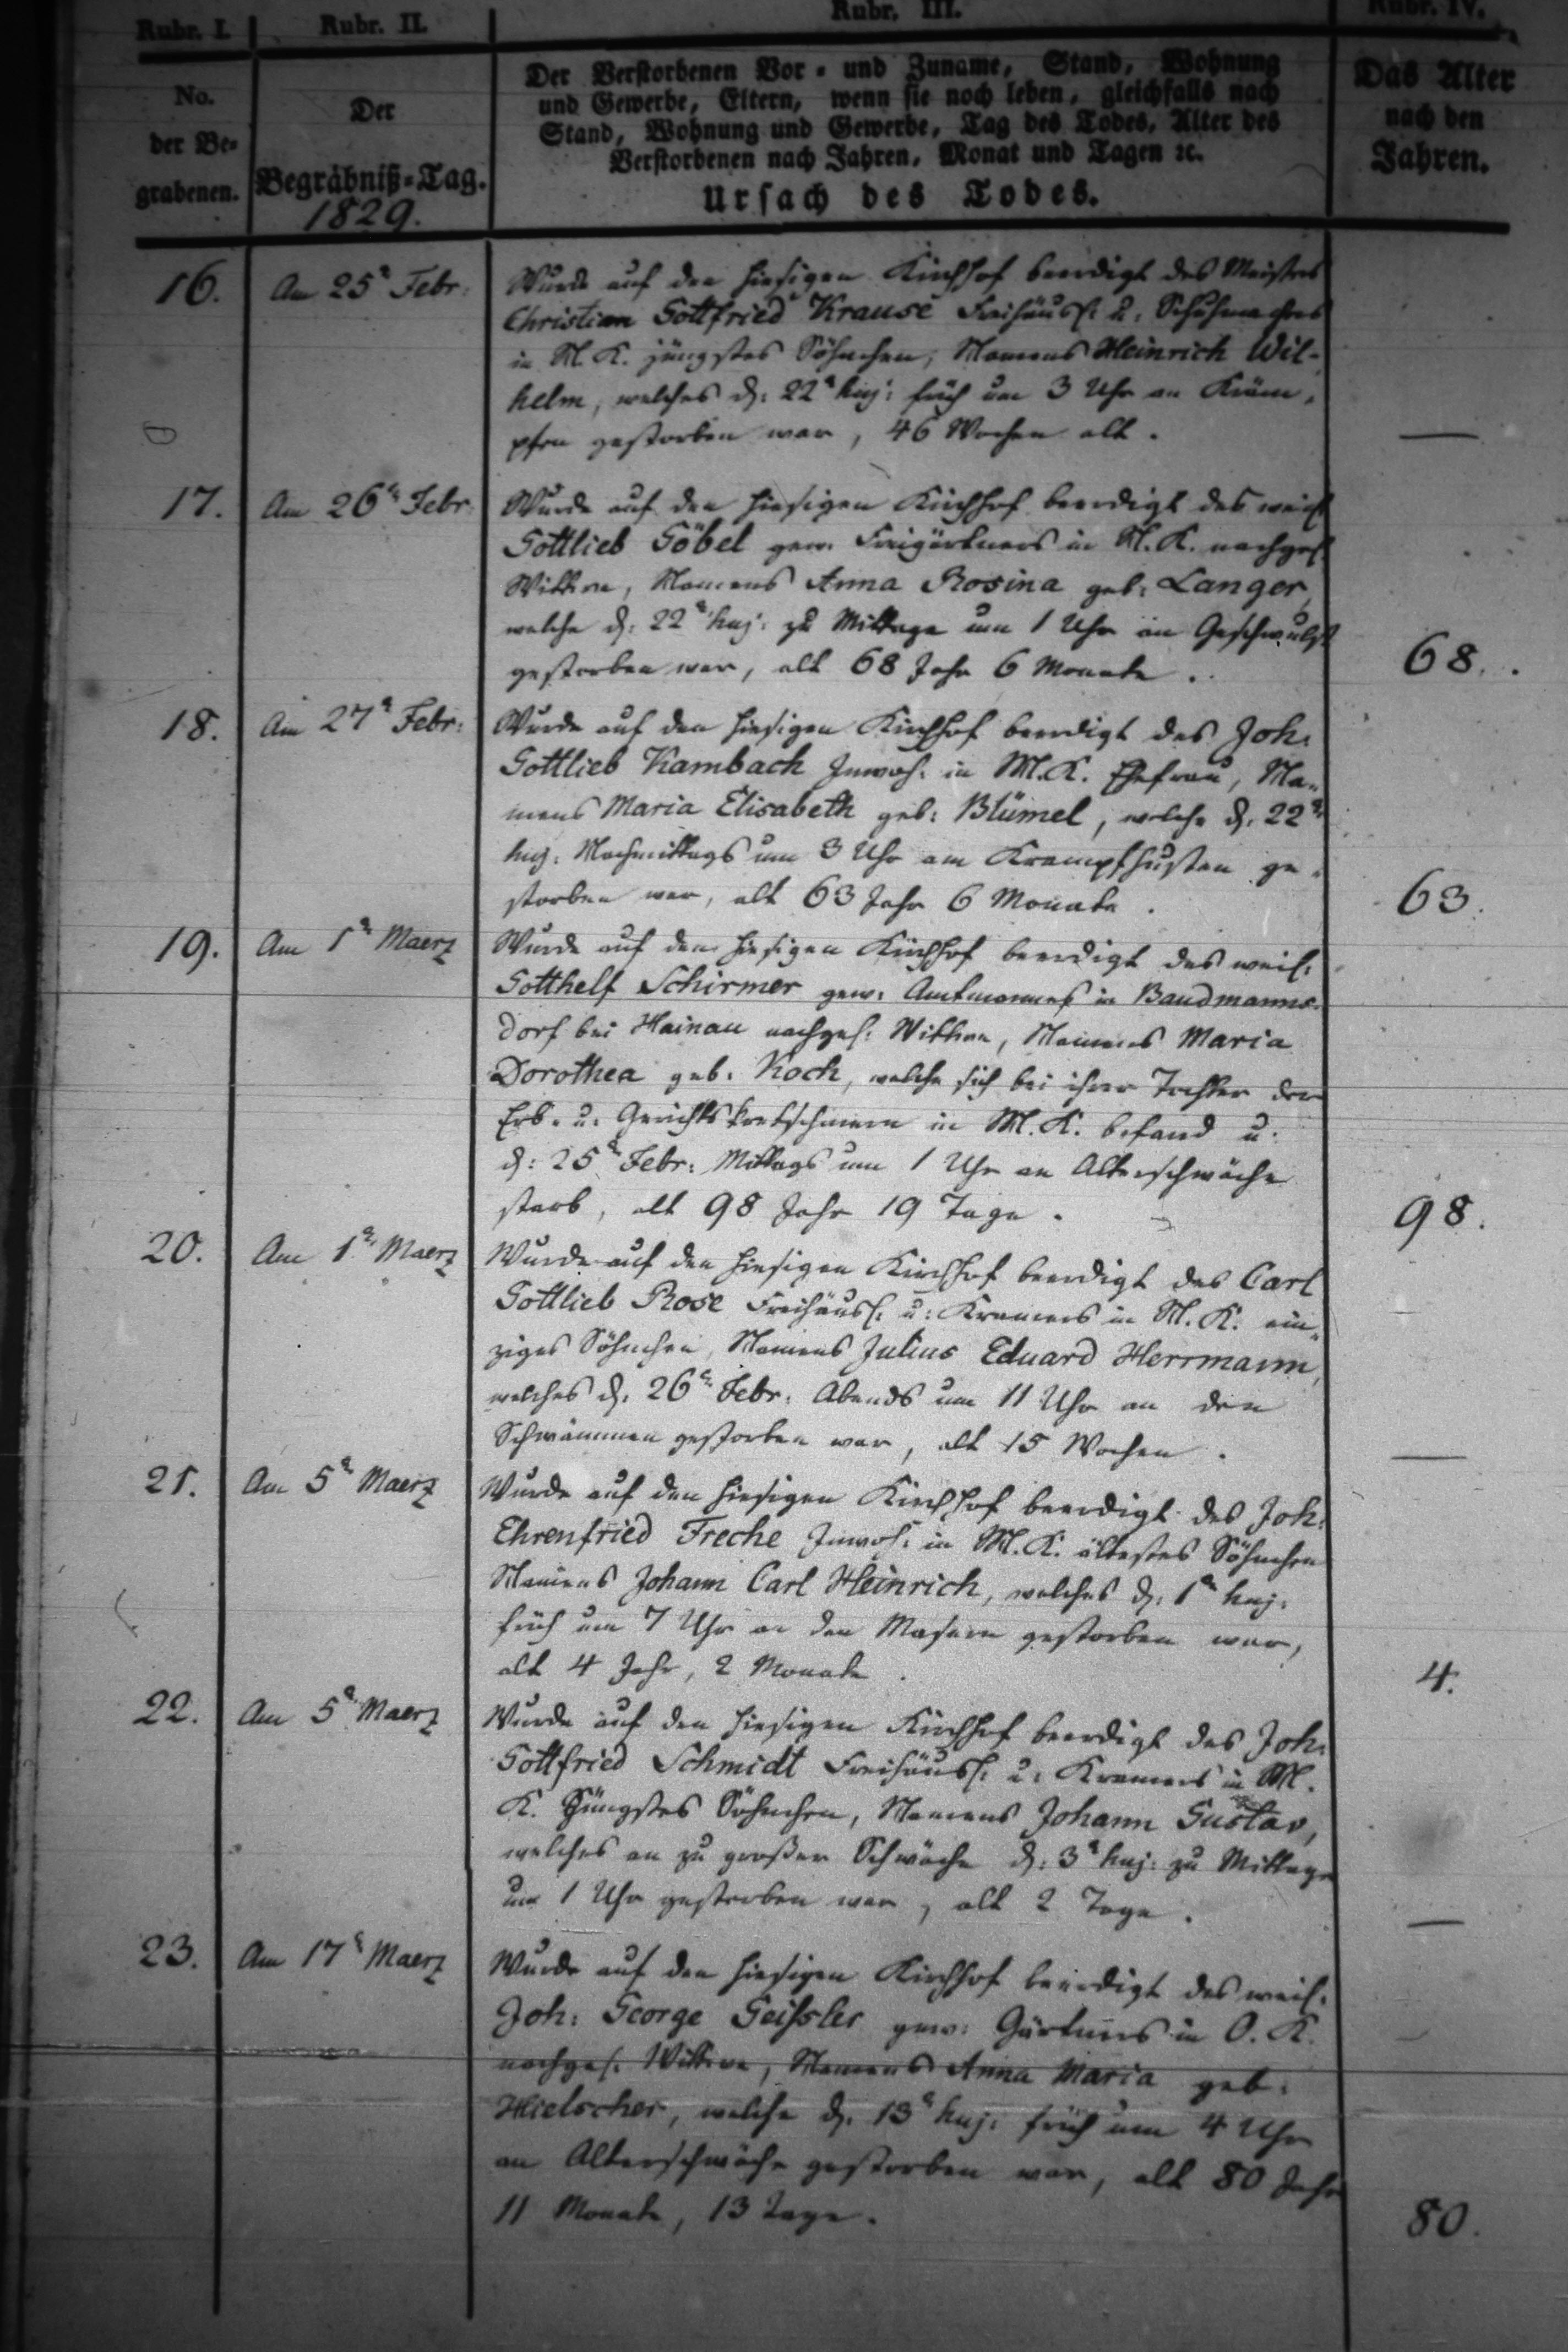 Rubr. I.
Rubr. II.
Rubr. III.
Rubr. IV.
No.
der Be-
grabenen.
Der
Begräbniß-Tag.
1829.
Der Verstorbenen Vor- und Zuname, Stand, Wohnung
und Gewerbe, Eltern, wenn sie noch leben, gleichfalls nach
Stand, Wohnung und Gewerbe, Tag des Todes, Alter des
Verstorbenen nach Jahren, Monat und Tagen ꝛc.
Ursach des Todes.
Das Alter
nach den
Jahren.
16.
Am 25n Febr:
Wurde auf den hiesigen Kirchhof beerdigt des Meisters
Christian Gottfried Krause Freihäusl: u: Schuhmachers
in M. K. jüngstes Söhnchen, Namens Heinrich Wil-
helm, welches d: 22n huj: früh um 3 Uhr an Kräm-
pfen gestorben war, 46 Wochen alt.
—
17.
Am 26n Febr
Wurde auf den hiesigen Kirchhof beerdigt des weil
Gottlieb Göbel gew. Freigärtners in M. K. nachgel
Wittwe, Namens Anna Rosina geb: Langer,
welche d: 22n huj: zu Mittage um 1 Uhr an Geschwulst
gestorben war, alt 68 Jahr 6 Monate.
68.
18.
Am 27n Febr:
Wurde auf den hiesigen Kirchhof beerdigt des Joh:
Gottlieb Kambach Inwoh: in M. K. Ehefrau, Na-
mens Maria Elisabeth geb: Blümel, welche d: 22n
huj: Nachmittags um 3 Uhr am Krampfhusten ge-
storben war, alt 63 Jahr 6 Monate.
63.
19.
Am 1n Maerz
Wurde auf den hiesigen Kirchhof beerdigt des weil:
Gotthelf Schirmer gew: Amtmannes in Baudmanns-
dorf bei Hainau nachgel: Wittwe, Namens Maria
Dorothea geb: Koch, welche sich bei ihrer Tochter der
Erb- u: Gerichtskretschmern in M. K. befand u:
d: 25n Febr: Mittags um 1 Uhr an Altersschwäche
starb, alt 98 Jahr 19 Tage.
98.
20.
Am 1n Maerz
Wurde auf den hiesigen Kirchhof beerdigt des Carl
Gottlieb Rose Freihäusl: u: Kramers in M. K. ein-
ziges Söhnchen, Namens Julius Eduard Herrmann,
welches d: 26n Febr: Abends um 11 Uhr an den
Schwämmen gestorben war, alt 15 Wochen.
—
21.
Am 5n Maerz
Wurde auf den hiesigen Kirchhof beerdigt des Joh:
Ehrenfried Freche Inwoh: in M. K. ältestes Söhnchen
Namens Johann Carl Heinrich, welches d: 1n huj:
früh um 7 Uhr an den Masern gestorben war,
alt 4 Jahr, 2 Monate.
4.
22.
Am 5n Maerz
Wurde auf den hiesigen Kirchhof beerdigt des Joh:
Gottfried Schmidt Freihäusl: u: Kramers in M.
K. Jüngstes Söhnchen, Namens Johann Gustav,
welches an zu großer Schwäche d: 3n huj: zu Mittage
um 1 Uhr gestorben war, alt 2 Tage.
—
23.
Am 17n Maerz
Wurde auf den hiesigen Kirchhof beerdigt des weil:
Joh: George Geißler gew: Gärtners in O. K.
nachgel: Wittwe, Namens Anna Maria geb:
Hielscher, welche d: 13n huj: früh um 4 Uhr
an Altersschwäche gestorben war, alt 80 Jahr
11 Monate, 13 Tage.
80.